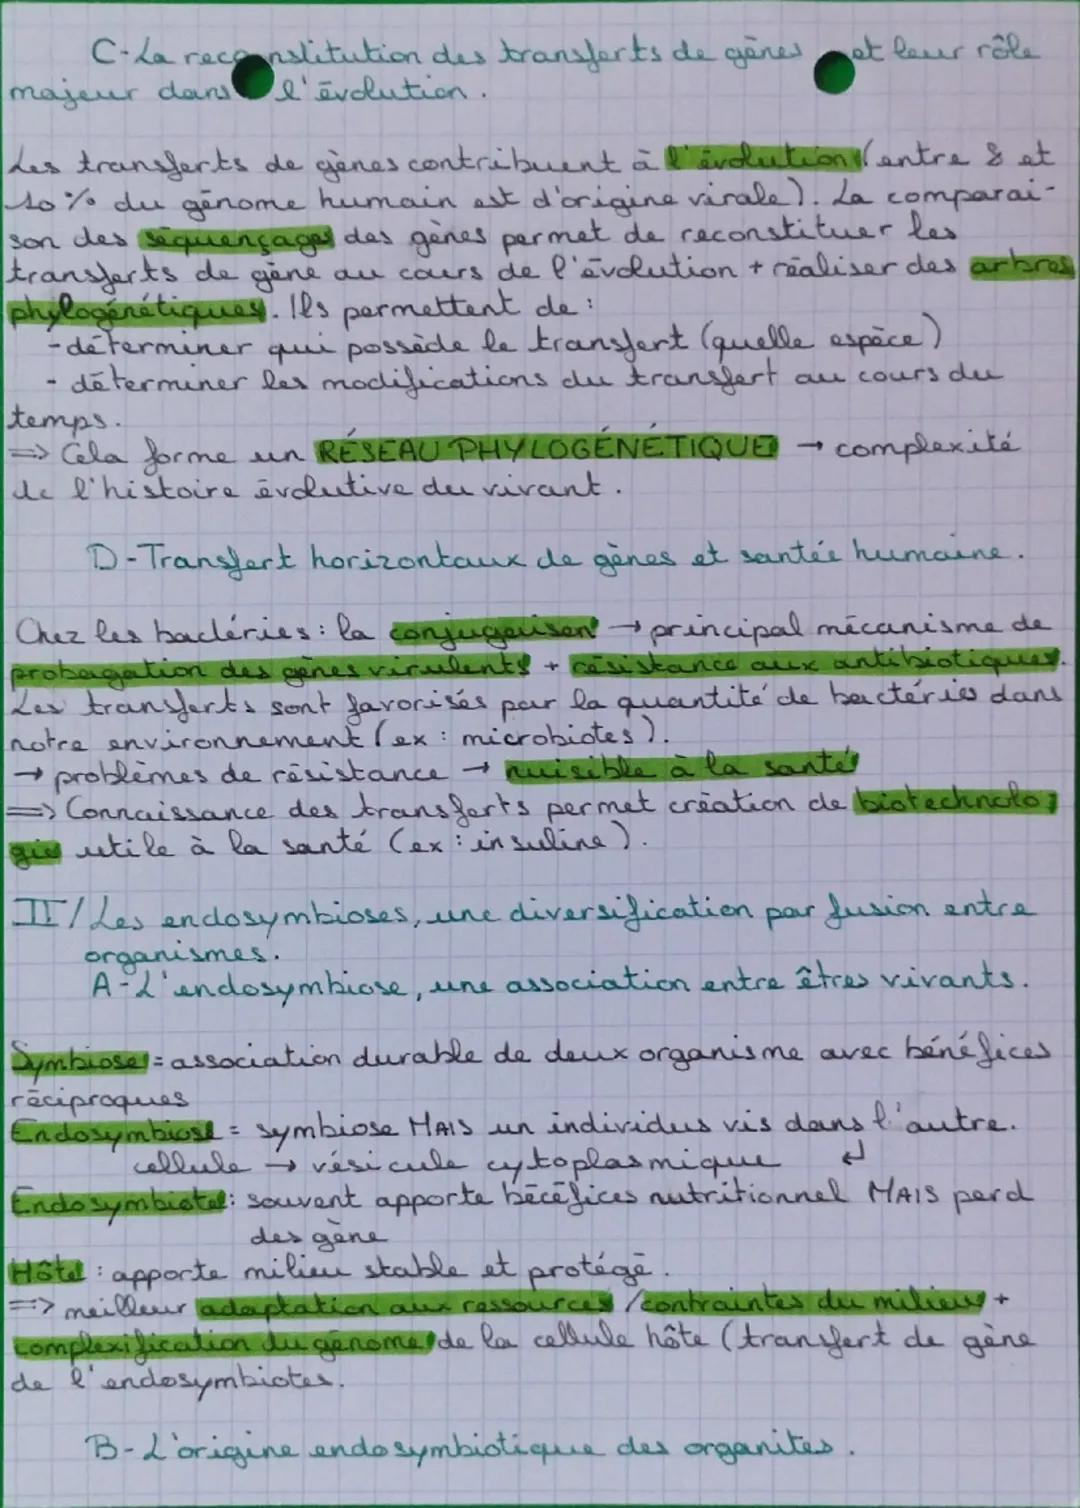 C-La reconstitution des transferts de gènes et leur rôle
majeur dans l'évolution.
Les transferts de gènes contribuent à l'évolution (entre 8 et
10% du génome humain est d'origine virale). La comparai-
son des séquençages des gènes permet de reconstituer les
transferts de gène au cours de l'évolution + réaliser des arbres
phylogénétiques. Ils permettent de :
-déterminer qui possède le transfert (quelle espèce)
- déterminer les modifications du transfert au cours du
temps.
=> Cela forme un RÉSEAU PHYLOGÉNÉTIQUE → complexité
de l'histoire évolutive du vivant.
D-Transfert horizontaux de gènes et santée humaine.
Chez les bactéries : la conjugaison → principal mécanisme de
probagation des gènes virulents + résistance aux antibiotiques.
Les transferts sont favorisés par la quantité de bactéries dans
notre environnement (ex : microbiotes).
→ problèmes de résistance → nuisible à la santé
=> Connaissance des transferts permet création de biotechnolo
gies utile à la santé (ex : insuline).
II/ Les endosymbioses, une diversification par fusion entre
organismes.
A-L'endosymbiose, une association entre êtres vivants.
Symbiose = association durable de deux organisme avec bénéfices
réciproques
Endosymbiose = symbiose MAIS un individus vis dans l'autre.
cellule → vésicule cytoplasmique ↵
Endosymbiote : souvent apporte bécéfices nutritionnel MAIS perd
des gène
Hôte : apporte milieu stable et protégé.
=> meilleur adaptation aux ressources / contraintes du milieu +
complexification du génome de la cellule hôte (transfert de gène
de l'endosymbiotes.
B-L'origine endosymbiotique des organites.